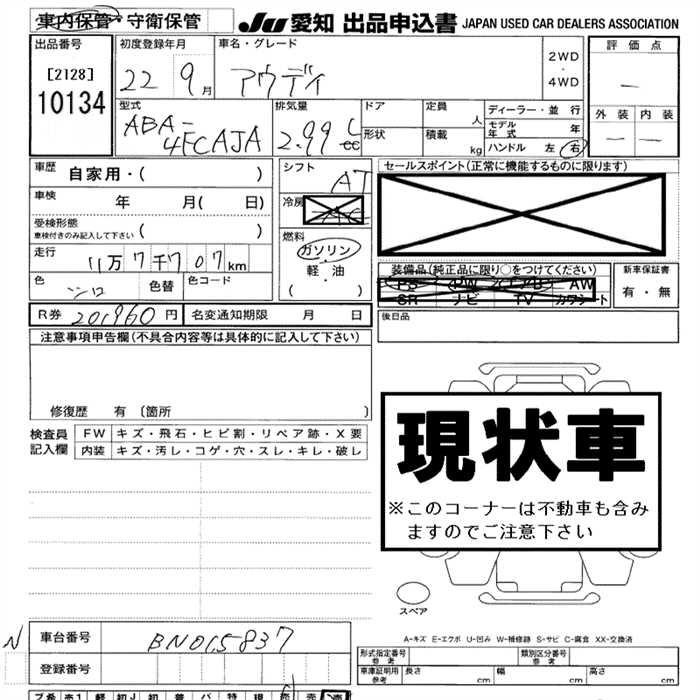 車内保管・守衛保管 JU 愛知 出品申込書 JAPAN USED CAR DEALERS ASSOCIATION
出品番号 初度登録年月 車名・グレード 評価点
[2128] 22 9月 アウディ 2WD・4WD —
10134
型式 排気量 ドア 定員 人 ディーラー・並行 外装 内装
ABA-4FCAJA 2.99 L cc 形状 積載 kg モデル年式 年 — —
ハンドル 左 右
車歴 自家用・( ) シフト AT セールスポイント(正常に機能するものに限ります)
車検 年 月(日) 冷房 AC
受検形態 ( )
車検付きのみ記入して下さい
燃料 ガソリン・軽・油 ( ・ )
走行 11万7千707km
装備品(純正品に限り○をつけてください) 新車保証書
色 シロ 色替 色コード PS PW エアB AW 有・無
SR ナビ TV カワシート
R券 201960円 名変通知期限 月 日 後日品
注意事項申告欄(不具合内容等は具体的に記入して下さい)
修復歴 有 〔箇所 〕
現状車
※このコーナーは不動車も含み
ますのでご注意下さい
検査員記入欄 FW キズ・飛石・ヒビ割・リペア跡・X要
内装 キズ・汚レ・コゲ・穴・スレ・キレ・破レ
スペア
A-キズ E-エクボ U-凹み W-補修跡 S-サビ C-腐食 XX-交換済
N 車台番号 BN015837
型式指定番号 参考 類別区分番号 参考
登録番号 車庫証明用 参考 長さ cm 幅 cm 高さ cm